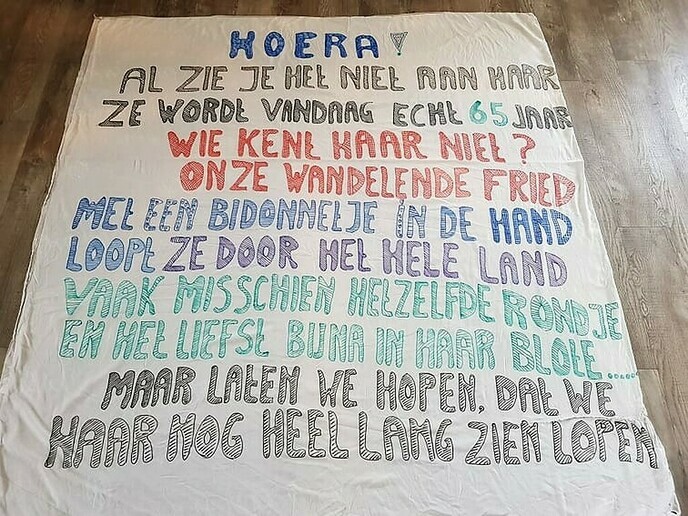 HOERA!
AL ZIE JE HET NIET AAN HAAR
ZE WORDT VANDAAG ECHT 65 JAAR
WIE KENT HAAR NIET?
ONZE WANDELENDE FRIED
MET EEN BIDONNETJE IN DE HAND
LOOPT ZE DOOR HET HELE LAND
VAAK MISSCHIEN HETZELFDE RONDJE
EN HET LIEFST BIJNA IN HAAR BLOTE......
MAAR LATEN WE HOPEN, DAT WE
HAAR NOG HEEL LANG ZIEN LOPEN